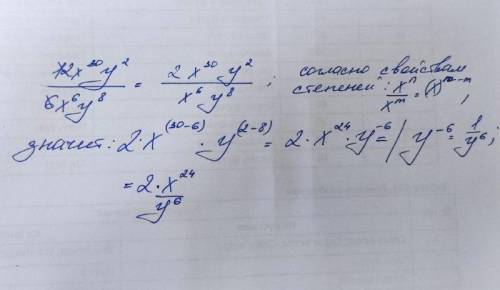 12x³⁰y² / 6x⁶y⁸ = 2x³⁰y² / x⁶y⁸ ; согласно свойствам
степеней: xⁿ / xᵐ = (x)ⁿ⁻ᵐ,
значит: 2·x⁽³⁰⁻⁶⁾ · y⁽²⁻⁸⁾ = 2·x²⁴·y⁻⁶ = / y⁻⁶ = 1 / y⁶;
= 2·x²⁴ / y⁶